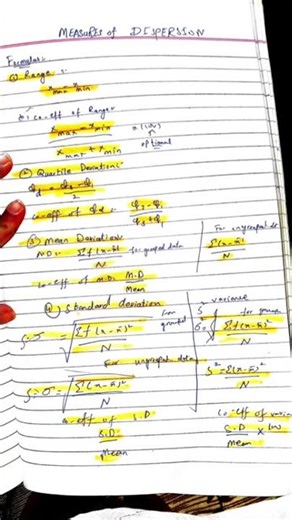 MEASURES of DISPERSION
Formulas:-
① Range :-
xmax - xmin
co-eff of Range:
xmax - xmin × (100)
xmax + xmin
optional
② Quartile Deviation:-
Qd = Q3 - Q1
2
co-eff of Qd = Q3 - Q1
Q3 + Q1
③ Mean Deviation:-
M.D = Σf(x-x̄) for grouped data
N
For ungrouped
Σ(x-x̄)
N
Co-eff of M.D. M.D
Mean
④ Standard deviation
S=σ = √Σf(x-x̄)²
N
For grouped
variance
for
Σf(x-x̄)²
N
For ungrouped data
S=σ = √Σ(x-x̄)²
N
S² = Σ(x-x̄)²
N
co-eff of S.D
S.D
Mean
Co-eff of
S.D × 100
Mean